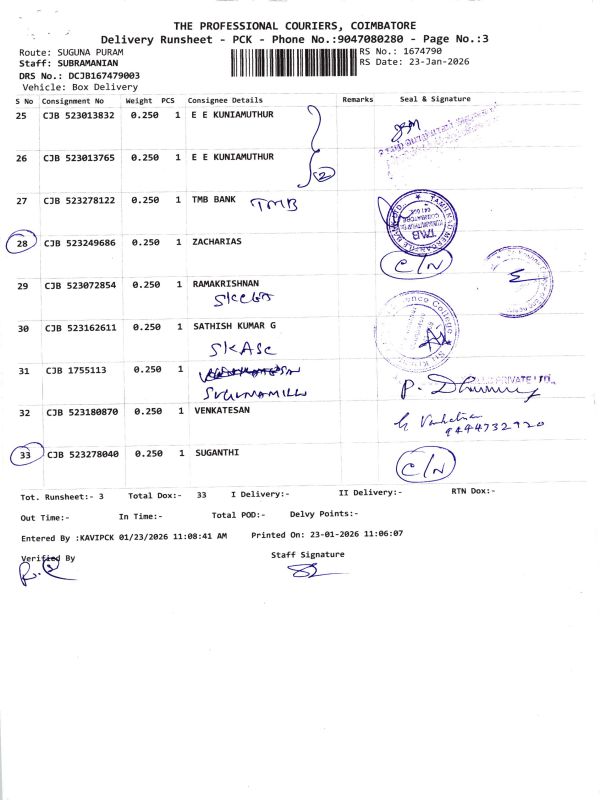 THE PROFESSIONAL COURIERS, COIMBATORE
Delivery Runsheet - PCK - Phone No.:9047080280 - Page No.:3
Route: SUGUNA PURAM
RS No.: 1674790
Staff: SUBRAMANIAN
RS Date: 23-Jan-2026
DRS No.: DCJB167479003
Vehicle: Box Delivery
S No Consignment No Weight PCS Consignee Details Remarks Seal & Signature
25 CJB 523013832 0.250 1 E E KUNIAMUTHUR
26 CJB 523013765 0.250 1 E E KUNIAMUTHUR
2
27 CJB 523278122 0.250 1 TMB BANK TMB
TMB
28 CJB 523249686 0.250 1 ZACHARIAS C/N
29 CJB 523072854 0.250 1 RAMAKRISHNAN
30 CJB 523162611 0.250 1 SATHISH KUMAR G
SKASC
31 CJB 1755113 0.250 1
SUGUNAMILLS
PRIVATE LTD.
32 CJB 523180870 0.250 1 VENKATESAN
9444732920
33 CJB 523278040 0.250 1 SUGANTHI C/N
Tot. Runsheet:- 3 Total Dox:- 33 I Delivery:- II Delivery:- RTN Dox:-
Out Time:- In Time:- Total POD:- Delvy Points:-
Entered By :KAVIPCK 01/23/2026 11:08:41 AM Printed On: 23-01-2026 11:06:07
Verified By Staff Signature